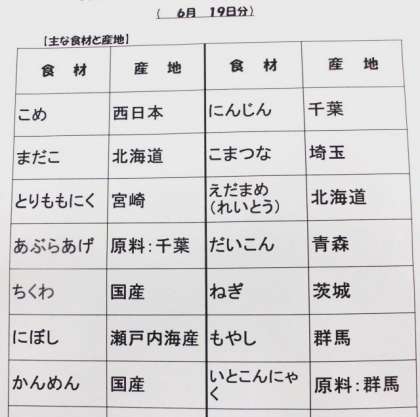 ( 6月 19日分)
【主な食材と産地】
食 材 産 地 食 材 産 地
こめ 西日本 にんじん 千葉
まだこ 北海道 こまつな 埼玉
とりももにく 宮崎 えだまめ
(れいとう) 北海道
あぶらあげ 原料:千葉 だいこん 青森
ちくわ 国産 ねぎ 茨城
にぼし 瀬戸内海産 もやし 群馬
かんめん 国産 いとこんにゃ
く 原料:群馬